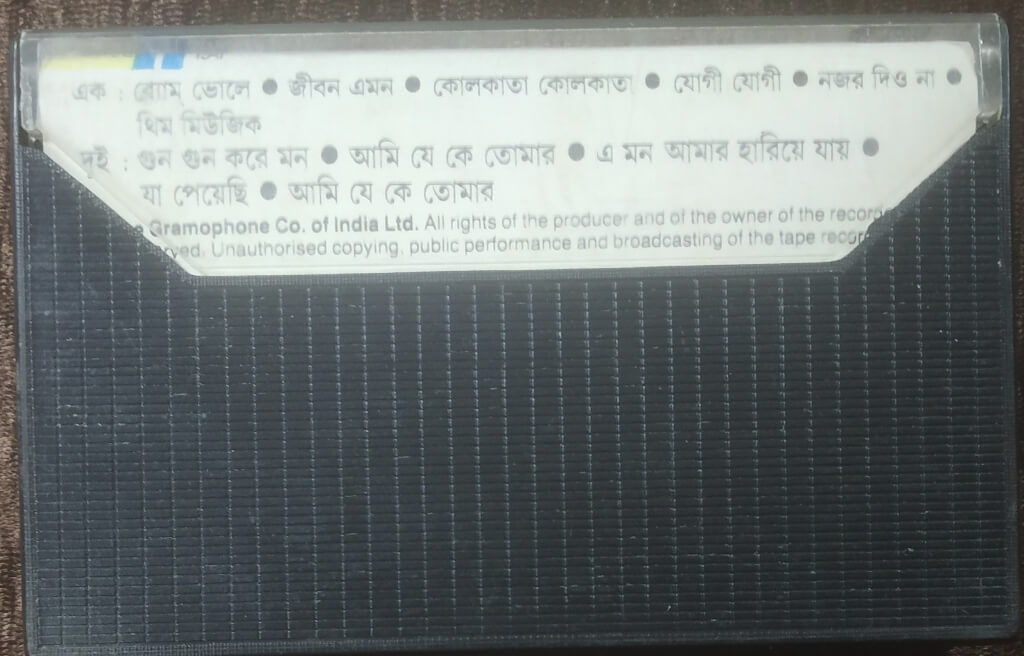 এক : ব্যোম্ ভোলে ● জীবন এমন ● কোলকাতা কোলকাতা ● যোগী যোগী ● নজর দিও না ●
থিম মিউজিক
দুই : গুন গুন করে মন ● আমি যে কে তোমার ● এ মন আমার হারিয়ে যায় ●
যা পেয়েছি ● আমি যে কে তোমার
Gramophone Co. of India Ltd. All rights of the producer and of the owner of the
Unauthorised copying, public performance and broadcasting of the tape